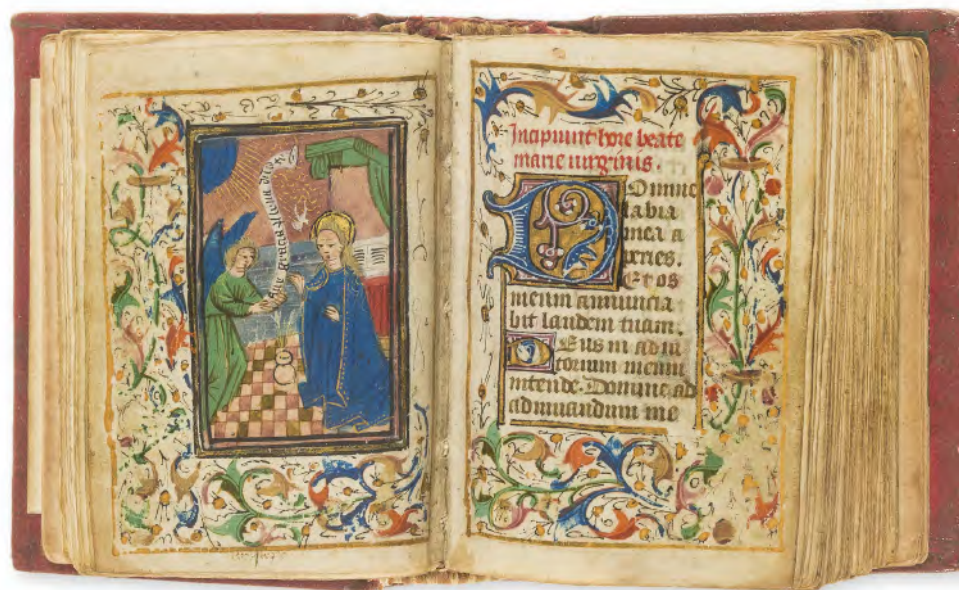 aue gracia plena dns
Incipiunt hore beate
marie uirginis.
Domine
labia
mea a
peries.
Et os
meum annuncia
bit laudem tuam.
Deus in adiu
torium meum
intende. Domine ad
adiuuandum me